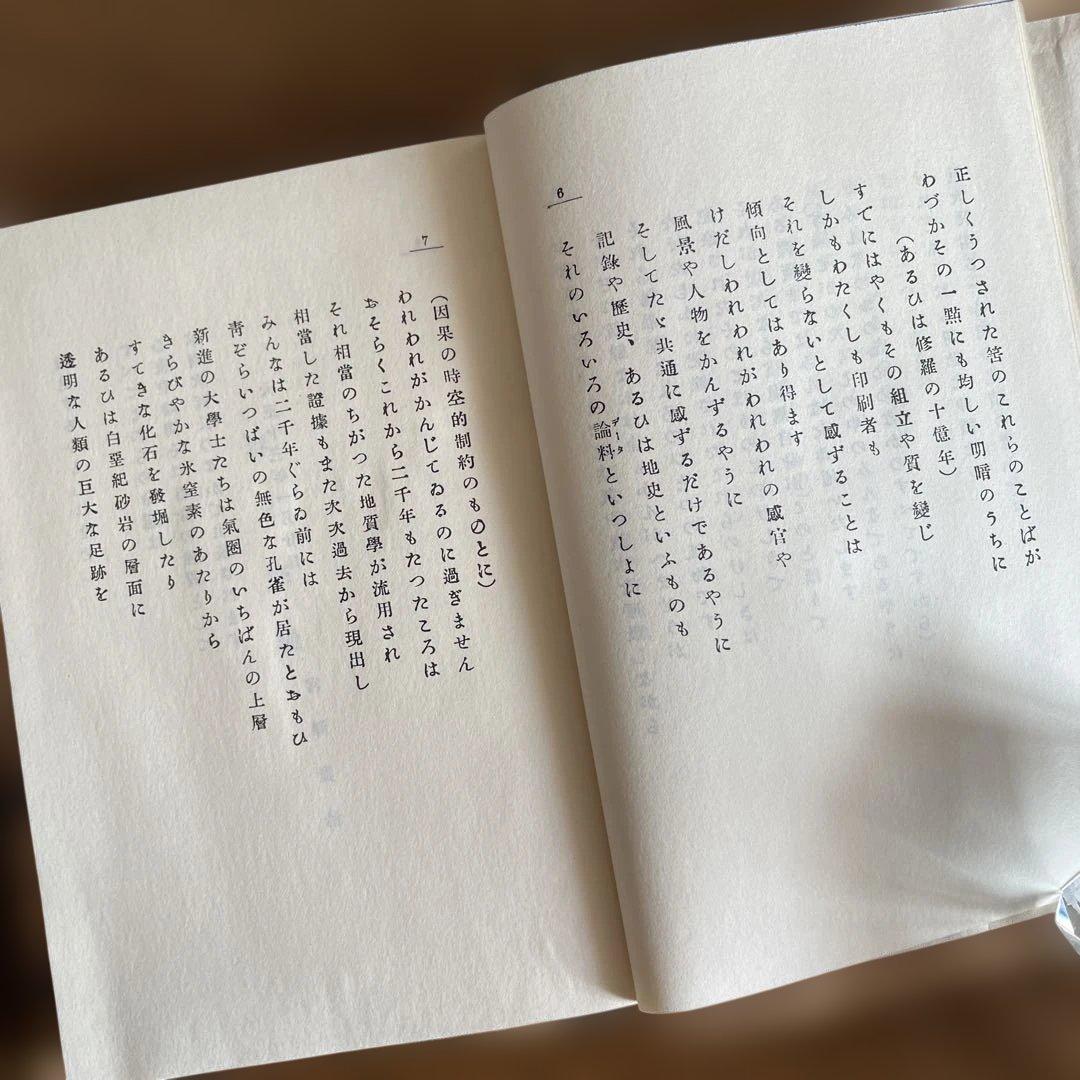 正しくうつされた筈のこれらのことばが
わづかその一點にも均しい明暗のうちに
(あるひは修羅の十億年)
すでにはやくもその組立や質を變じ
しかもわたくしも印刷者も
それを變らないとして感ずることは
傾向としてはあり得ます
けだしわれわれがわれわれの感官や
風景や人物をかんずるやうに
そしてたゞ共通に感ずるだけであるやうに
記錄や歷史、あるひは地史といふものも
それのいろいろの論料といつしよに
データ
6
7
(因果の時空的制約のもとに)
われわれがかんじてゐるのに過ぎません
おそらくこれから二千年もたつたころは
それ相當のちがつた地質學が流用され
相當した證據もまた次次過去から現出し
みんなは二千年ぐらゐ前には
靑ぞらいつぱいの無色な孔雀が居たとおもひ
新進の大學士たちは氣圈のいちばんの上層
きらびやかな氷窒素のあたりから
すてきな化石を發堀したり
あるひは白堊紀砂岩の層面に
透明な人類の巨大な足跡を